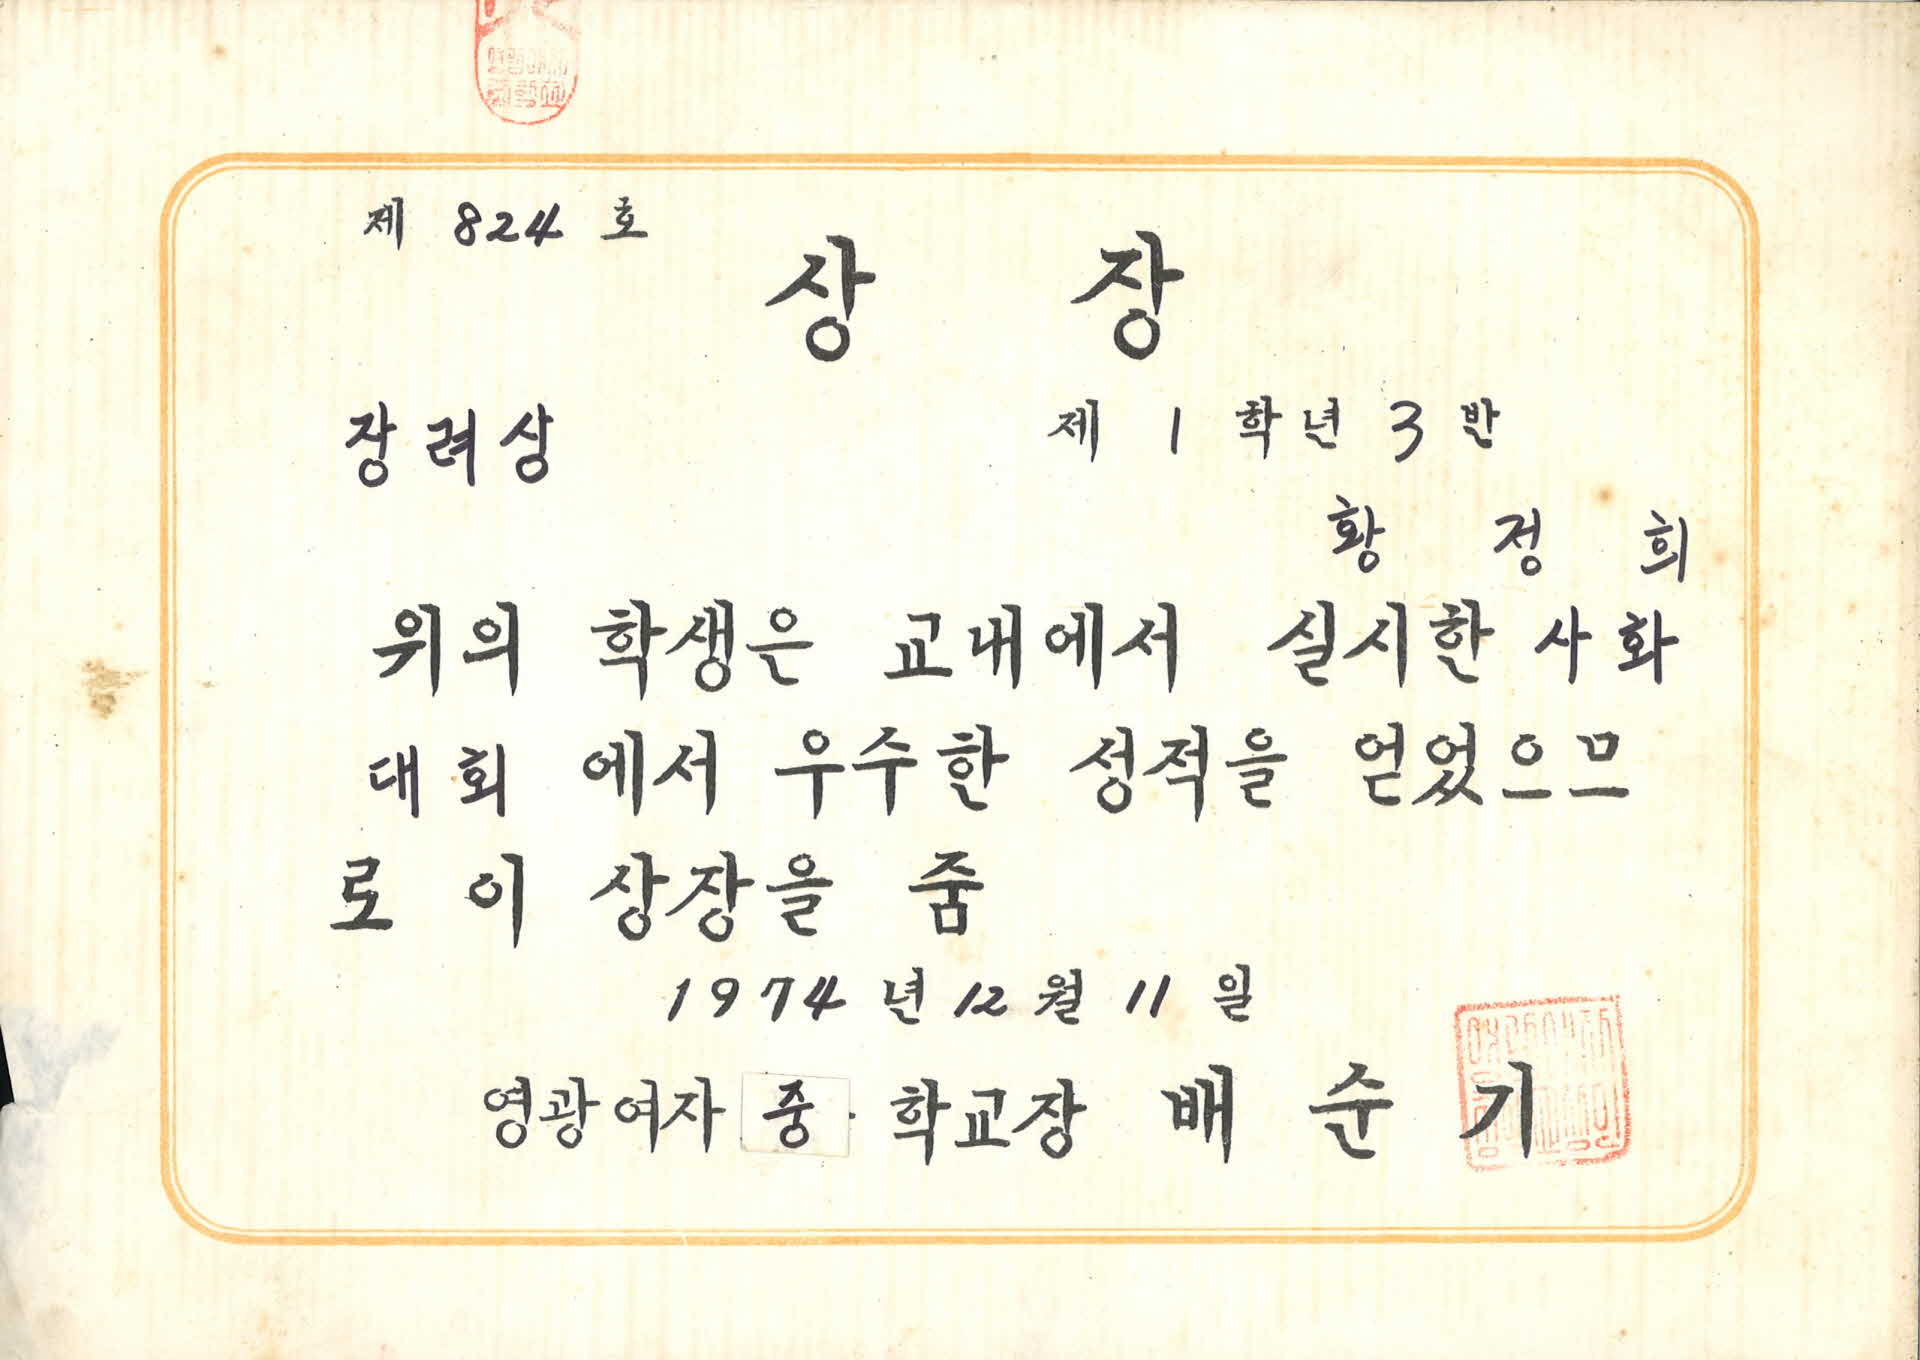 제 824 호
상 장
장려상
제 1 학년 3 반
황 정 희
위의 학생은 교내에서 실시한 사화
대회 에서 우수한 성적을 얻었으므
로 이 상장을 줌
1974 년 12 월 11 일
영광여자 중 학교장 배 순 기